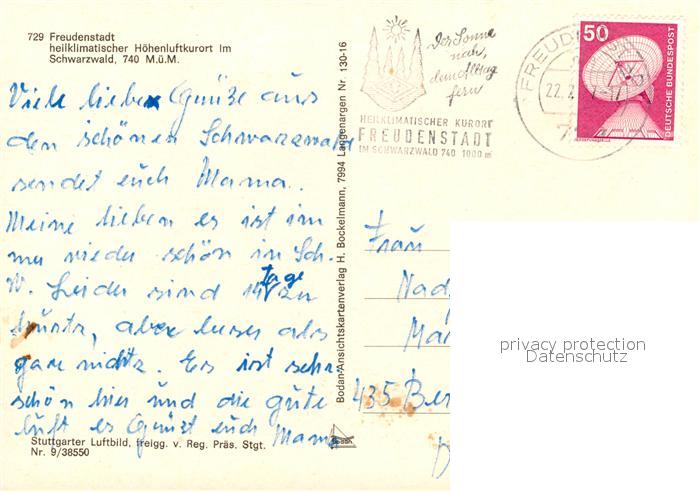 729 Freudenstadt
heilklimatischer Höhenluftkurort im
Schwarzwald, 740 M.ü.M.
Viele lieben Grüße aus
den schönen Schwarzwald
sendet euch Mama.
Meine lieben es ist im
mer wieder schön im Sch.
W. Leider sind 14 tage zu
kurtz, aber besser als
gar nichts. Es ist sehr
schön hier und die gute
luft es Grüßt euch Mama
Stuttgarter Luftbild, freigg. v. Reg. Präs. Stgt.
Nr. 9/38550
Bodan-Ansichtskartenverlag H. Bockelmann, 7994 Langenargen Nr. 130-16
Der Sonne
nah,
dem Alltag
fern
HEILKLIMATISCHER KURORT
FREUDENSTADT
IM SCHWARZWALD 740 1000 m
FREUD
22.2
7
50
DEUTSCHE BUNDESPOST
Frau
Nad
Mar
435 Ber
privacy protection
Datenschutz